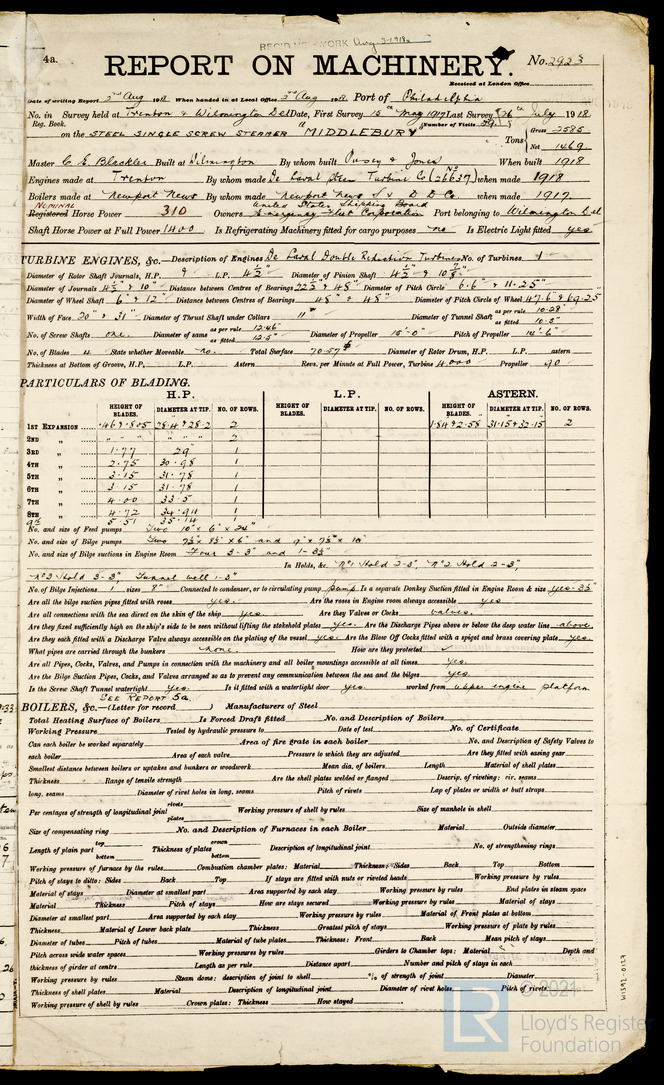 REC'D NEW YORK Aug 3-1918
4a.
REPORT ON MACHINERY.
No. 2923
Received at London Office
Date of writing Report 2nd Aug 1918 When handed in at Local Office 3rd Aug 1918 Port of Philadelphia
No. in Reg. Book. Survey held at Trenton & Wilmington Del Date, First Survey 15th May 1917 Last Survey 26th July 1918
(Number of Visits 59)
on the STEEL SINGLE SCREW STEAMER "MIDDLEBURY" Tons Gross 2585 Net 1469
Master C. E. Blackler Built at Wilmington By whom built Pusey & Jones When built 1918
Engines made at Trenton By whom made De Laval Steam Turbine Co (No 26637) when made 1918
Boilers made at Newport News By whom made Newport News S & D D Co. when made 1917
NOMINAL
Registered Horse Power 310 Owners United States Shipping Board Emergency Fleet Corporation Port belonging to Wilmington Del
Shaft Horse Power at Full Power 1400 Is Refrigerating Machinery fitted for cargo purposes no Is Electric Light fitted yes
TURBINE ENGINES, &c.—Description of Engines De Laval Double Reduction Turbines No. of Turbines 1
Diameter of Rotor Shaft Journals, H.P. 9 L.P. 4½" Diameter of Pinion Shaft 4½ & 10⅞"
Diameter of Journals 4½ & 10" Distance between Centres of Bearings 22½ & 48" Diameter of Pitch Circle 6.6" & 11.25"
Diameter of Wheel Shaft 6" & 12" Distance between Centres of Bearings 48" & 48" Diameter of Pitch Circle of Wheel 47.6 & 69.25
Width of Face 20" & 31" Diameter of Thrust Shaft under Collars 11" Diameter of Tunnel Shaft as per rule 10.28 as fitted 10.5"
No. of Screw Shafts one. Diameter of same as per rule 12.46 as fitted 12.5" Diameter of Propeller 15'-0" Pitch of Propeller 14'-6"
No. of Blades 4 State whether Moveable no. Total Surface 70.57 Diameter of Rotor Drum, H.P. L.P. astern
Thickness at Bottom of Groove, H.P. L.P. Astern Revs. per Minute at Full Power, Turbine 4000 Propeller 90
PARTICULARS OF BLADING.
H.P. L.P. ASTERN.
HEIGHT OF BLADES. DIAMETER AT TIP. NO. OF ROWS. HEIGHT OF BLADES. DIAMETER AT TIP. NO. OF ROWS. HEIGHT OF BLADES. DIAMETER AT TIP. NO. OF ROWS.
1ST EXPANSION .469 & .805 28.4 & 28.2 2 1.84 & 2.58 31.15 & 32.15 2
2ND " " " " " 2
3RD " 1.77 29" 1
4TH " 2.75 30.98 1
5TH " 3.15 31.78 1
6TH " 3.15 31.78 1
7TH " 4.00 33.5 1
8TH " 4.72 34.94 1
9th 5.51 35.14 1
No. and size of Feed pumps Two 10" x 6" x 24"
No. and size of Bilge pumps Two 7½ x 8½ x 6" and 9" x 7½ x 10"
No. and size of Bilge suctions in Engine Room Four 3-3" and 1-3½"
In Holds, &c. No 1 Hold 2-3", No 2 Hold 2-3",
No 3 Hold 3-3", Tunnel well 1-3"
No. of Bilge Injections 1 sizes 8" Connected to condenser, or to circulating pump pump. Is a separate Donkey Suction fitted in Engine Room & size yes-3½"
Are all the bilge suction pipes fitted with roses yes. Are the roses in Engine room always accessible yes
Are all connections with the sea direct on the skin of the ship yes. Are they Valves or Cocks valves.
Are they fixed sufficiently high on the ship's side to be seen without lifting the stokehold plates yes. Are the Discharge Pipes above or below the deep water line above.
Are they each fitted with a Discharge Valve always accessible on the plating of the vessel yes. Are the Blow Off Cocks fitted with a spigot and brass covering plate yes.
What pipes are carried through the bunkers none. How are they protected ✓
Are all Pipes, Cocks, Valves, and Pumps in connection with the machinery and all boiler mountings accessible at all times yes.
Are the Bilge Suction Pipes, Cocks, and Valves arranged so as to prevent any communication between the sea and the bilges yes.
Is the Screw Shaft Tunnel watertight yes. Is it fitted with a watertight door yes. worked from upper engine platform
SEE REPORT 5a.
BOILERS, &c.—(Letter for record ) Manufacturers of Steel
Total Heating Surface of Boilers Is Forced Draft fitted No. and Description of Boilers
Working Pressure Tested by hydraulic pressure to Date of test No. of Certificate
Can each boiler be worked separately Area of fire grate in each boiler No. and Description of Safety Valves to
each boiler Area of each valve Pressure to which they are adjusted Are they fitted with easing gear
Smallest distance between boilers or uptakes and bunkers or woodwork Mean dia. of boilers Length Material of shell plates
Thickness Range of tensile strength Are the shell plates welded or flanged Descrip. of riveting: cir. seams
long. seams Diameter of rivet holes in long. seams Pitch of rivets Lap of plates or width of butt straps
Per centages of strength of longitudinal joint rivets plates Working pressure of shell by rules Size of manhole in shell
Size of compensating ring No. and Description of Furnaces in each Boiler Material Outside diameter
Length of plain part top bottom Thickness of plates crown bottom Description of longitudinal joint No. of strengthening rings
Working pressure of furnace by the rules Combustion chamber plates: Material Thickness: Sides Back Top Bottom
Pitch of stays to ditto: Sides Back Top If stays are fitted with nuts or riveted heads Working pressure by rules
Material of stays Diameter at smallest part Area supported by each stay Working pressure by rules End plates in steam space
Material Thickness Pitch of stays How are stays secured Working pressure by rules Material of stays
Diameter at smallest part Area supported by each stay Working pressure by rules Material of Front plates at bottom
Thickness Material of Lower back plate Thickness Greatest pitch of stays Working pressure of plate by rules
Diameter of tubes Pitch of tubes Material of tube plates Thickness: Front Back Mean pitch of stays
Pitch across wide water spaces Working pressures by rules Girders to Chamber tops: Material Depth and
thickness of girder at centre Length as per rule Distance apart Number and pitch of stays in each
Working pressure by rules Steam dome: description of joint to shell % of strength of joint Diameter
Thickness of shell plates Material Description of longitudinal joint Diameter of rivet holes Pitch of rivets
Working pressure of shell by rules Crown plates: Thickness How stayed
W1592-0127
LR
© 2021
Lloyd's Register
Foundation